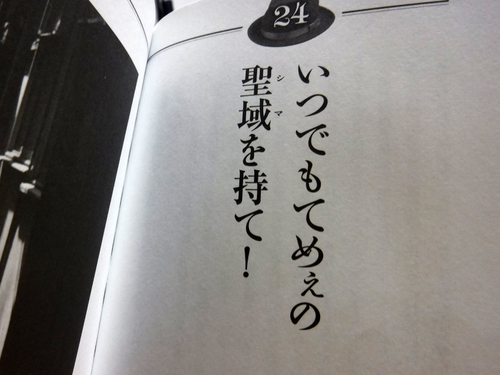 24
いつでもてめぇの
聖域を持て！
シマ